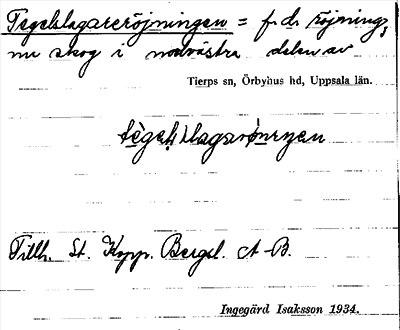 Tegelslagareröjningen = f.d. röjning,
nu skog i nordvästra delen av
Tierps sn, Örbyhus hd, Uppsala län.
Tillh. St. Kopp. Bergsl. A-B.
Ingegärd Isaksson 1934.